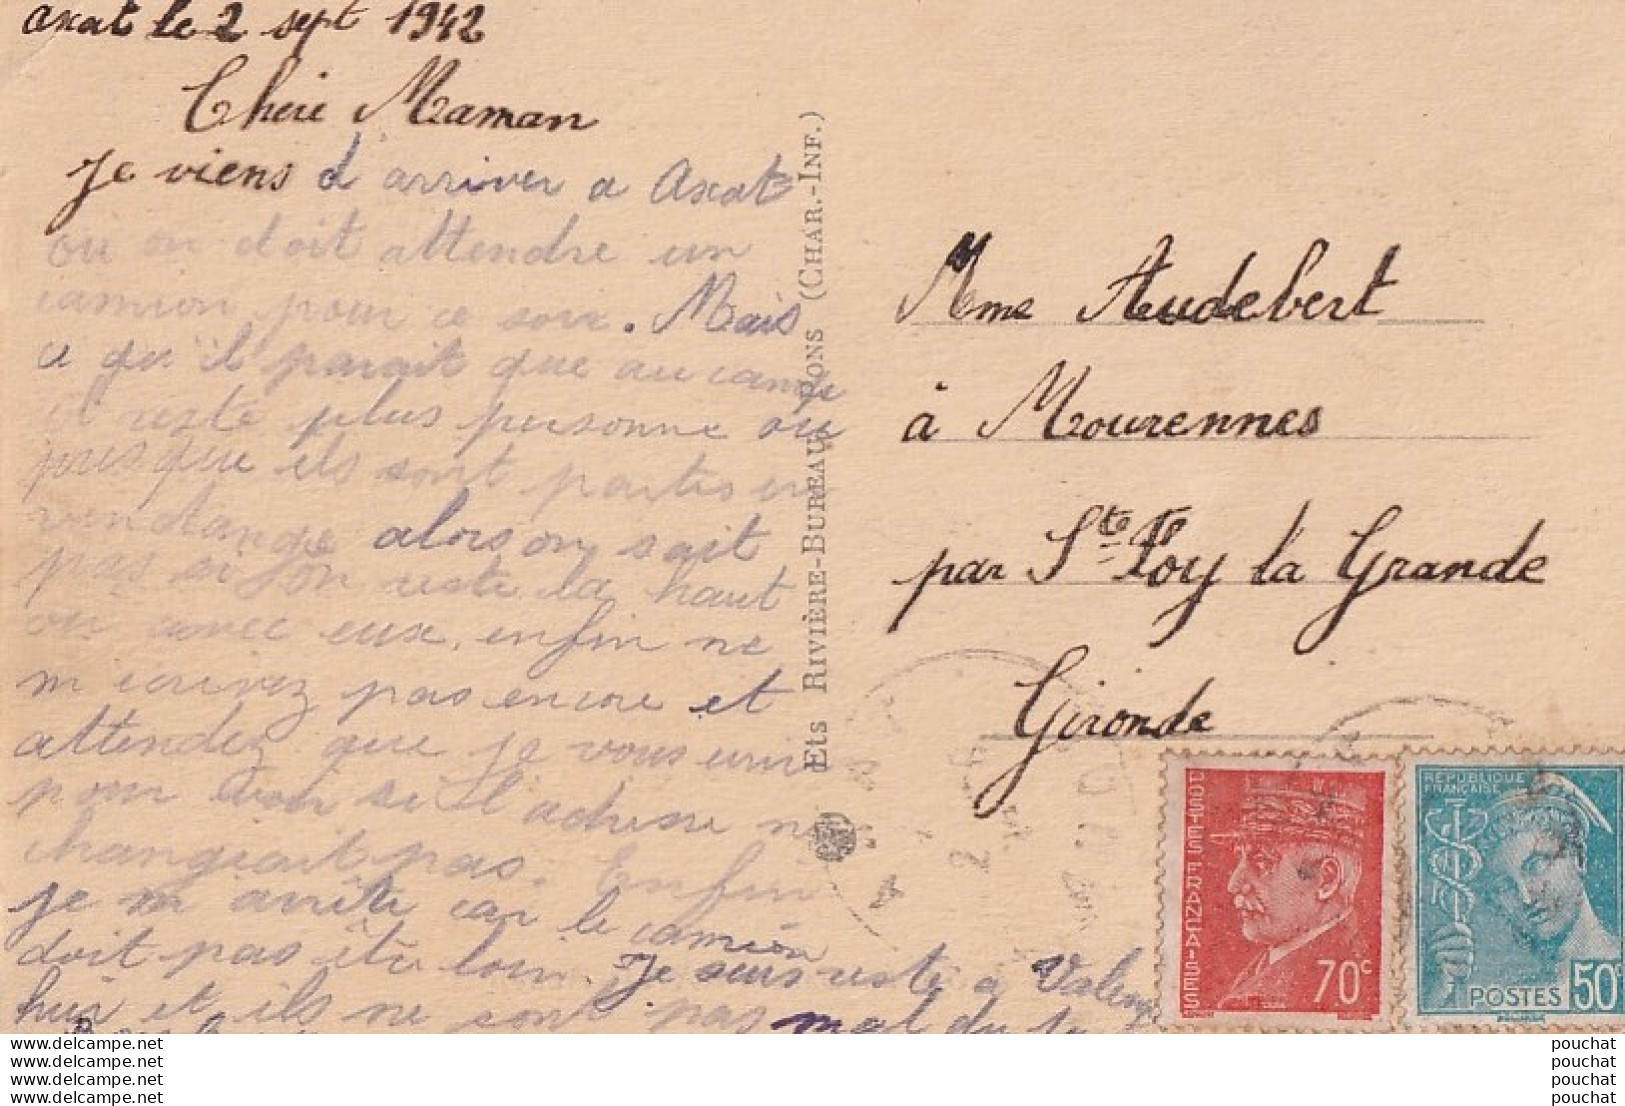 axat le 2 sept 1942
Chère Maman
Je viens d'arriver a Axat
ou on doit attendre un
camion pour ce soir. Mais
a qu'il parait que au camp
il reste plus personne ou
puis que ils sont partis en
vendange alors on sait
pas si on reste la haut
ou avec eux, enfin ne
m'ecrivez pas encore et
attendez que je vous
pour si l'adresse ne
changeait pas. Enfin
je m'arrête car le camion
doit pas être loin. Je suis resté a
hui et ils ne sont pas mal du
Ets RIVIÈRE-BUREAU PONS (CHAR.-INF.)
Mme Audebert
à Mourennes
par Ste Foy la Grande
Gironde
POSTES FRANÇAISES
70c
RÉPUBLIQUE
FRANÇAISE
POSTES 50c
www.delcampe.net
www.delcampe.net
www.delcampe.net
www.delcampe.net
pouchat
pouchat
pouchat
pouchat